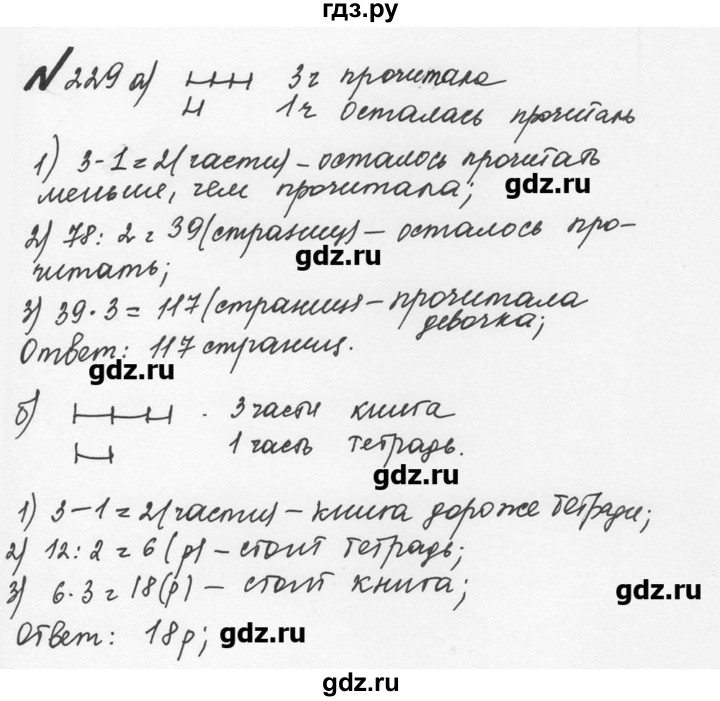 гдз.ру
№229 а) 3ч прочитала
1ч осталась прочитать
1) 3-1=2(части)-осталось прочитать
меньше, чем прочитала; gdz.ru
2) 78:2=39(страниц)-осталось про-
gdz.ru
читать;
3) 39·3=117(страниц)-прочитала
девочка;
Ответ: 117 страниц.
gdz.ru
б) 3 части книга
1 часть тетрадь.
gdz.ru
1) 3-1=2(части)-книга дороже тетради;
2) 12:2=6(р)-стоит тетрадь;
3) 6·3=18(р)-стоит книга; gdz.ru
Ответ: 18р; gdz.ru
gdz.ru